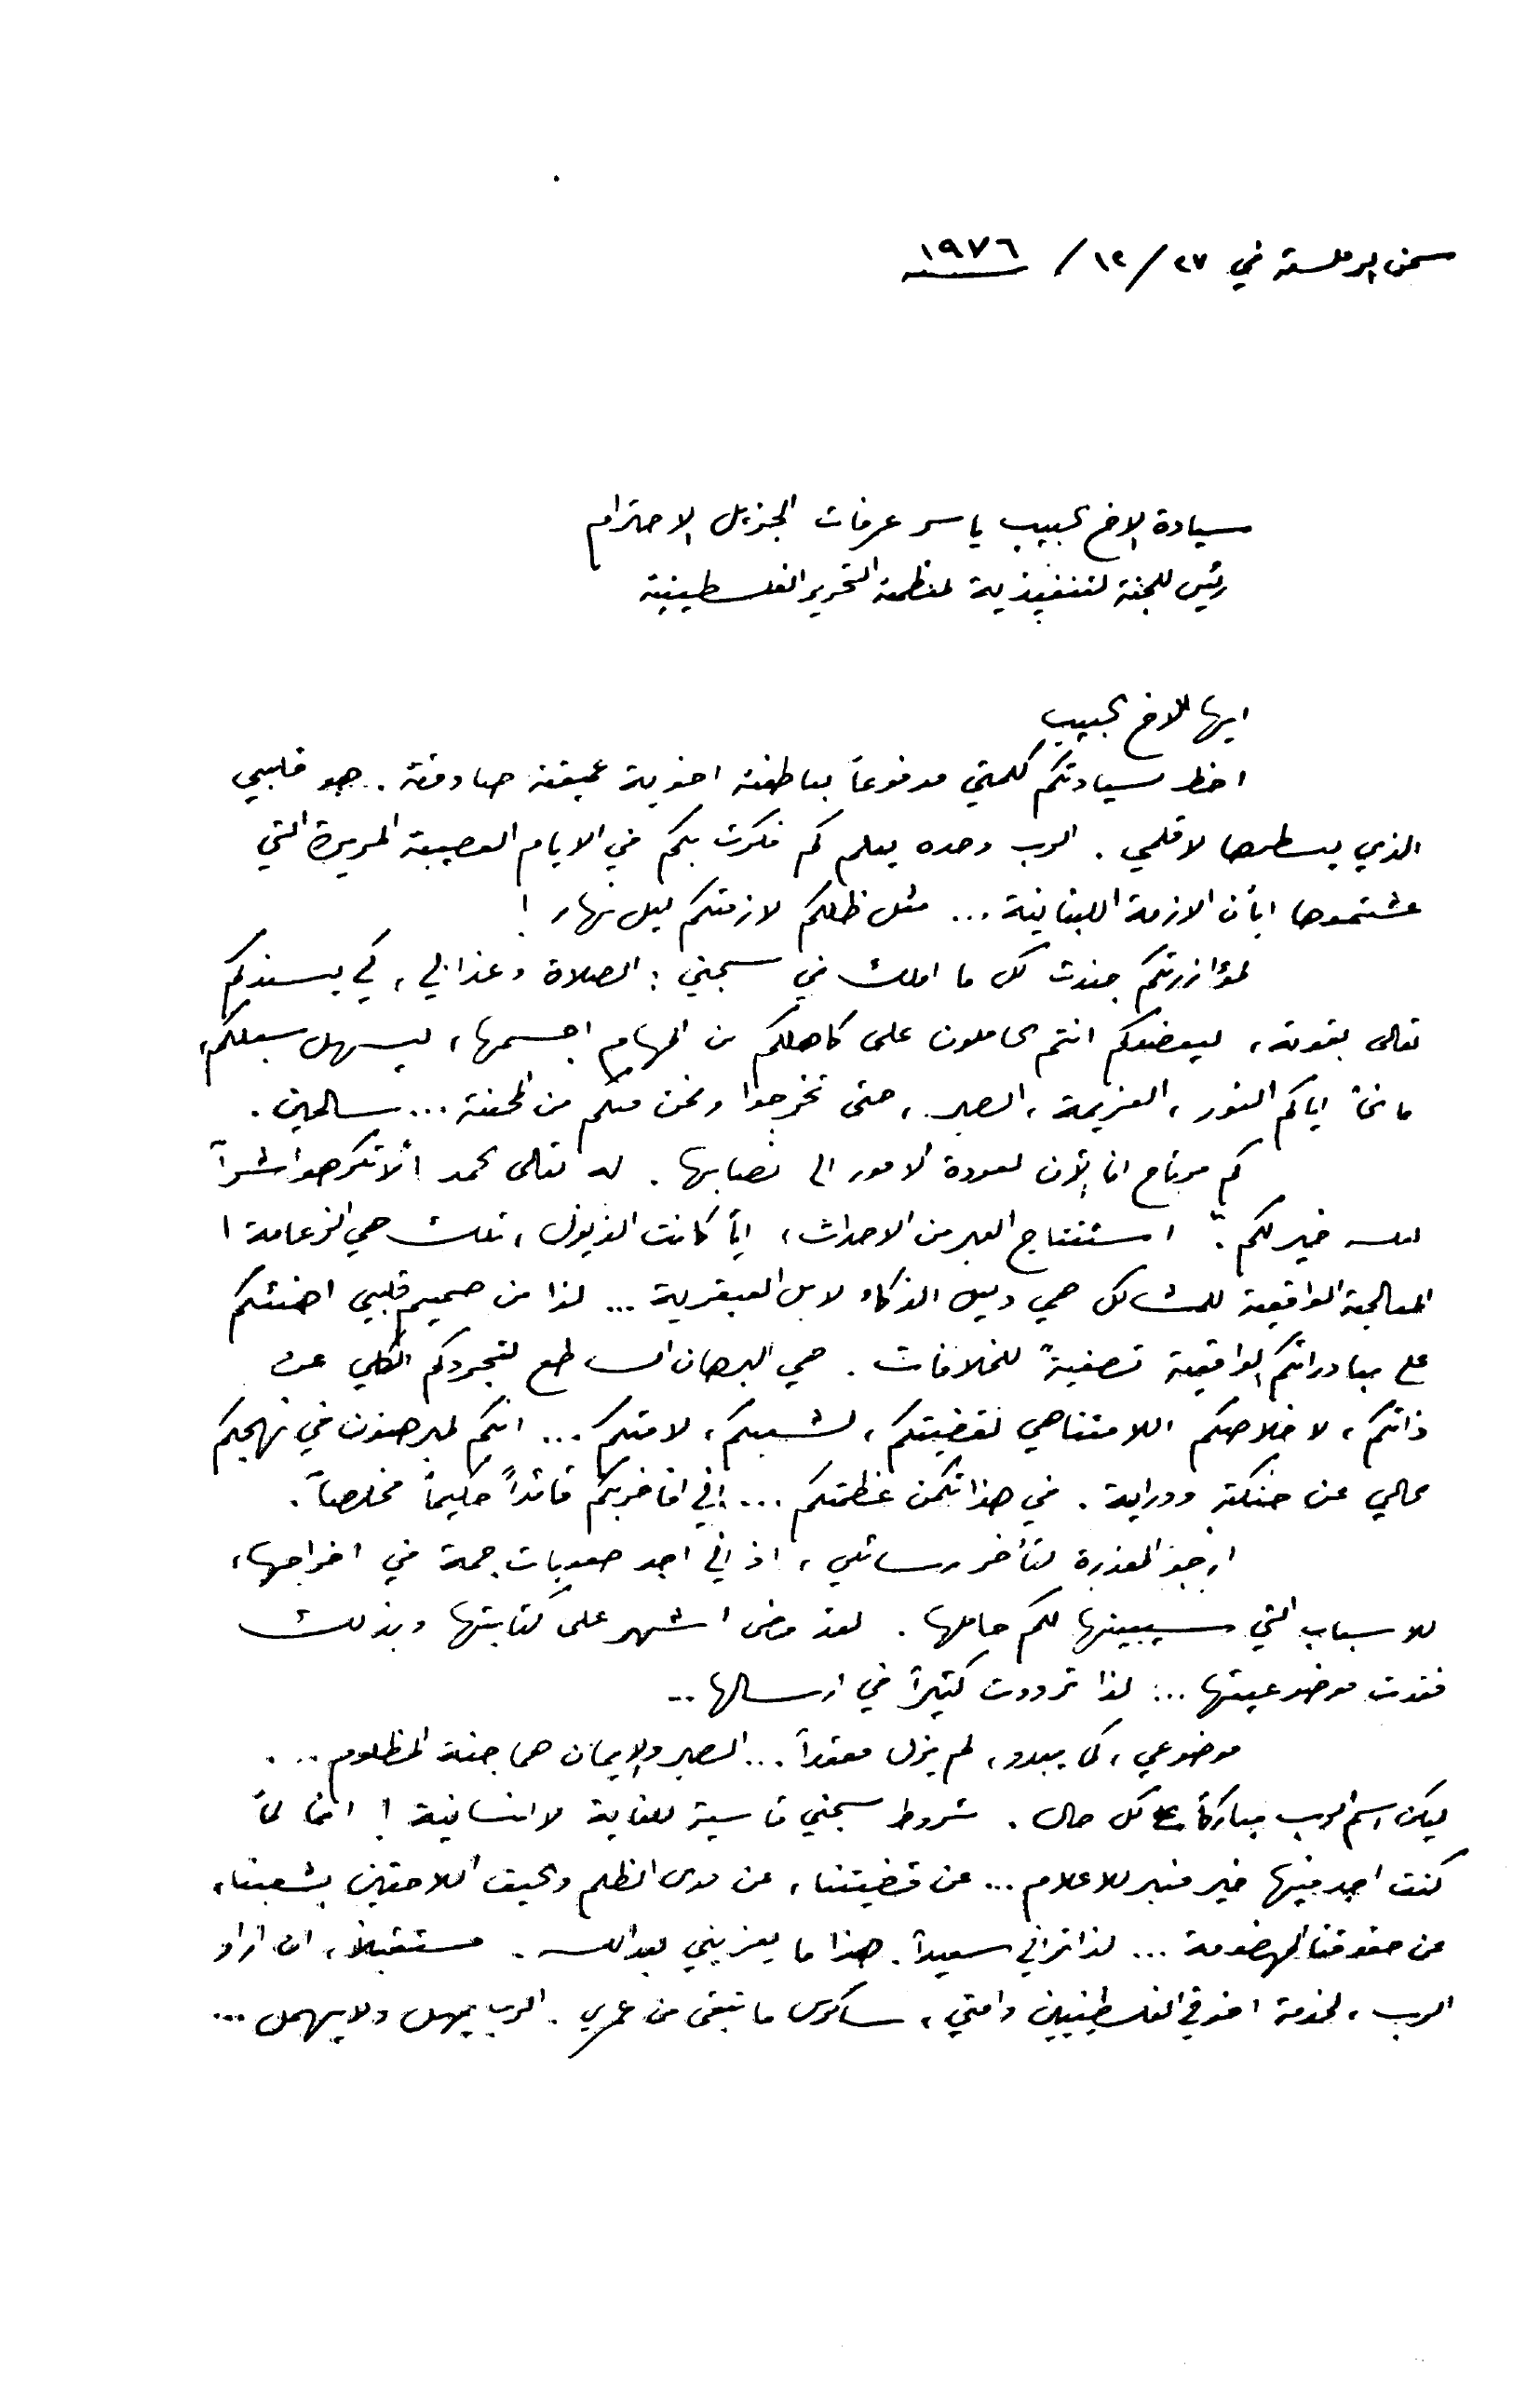 سجن الرملة في ٢٧/ ١٢/ ١٩٧٦
سيادة الاخ الحبيب ياسر عرفات الجزيل الاحترام
رئيس اللجنة التنفيذية لمنظمة التحرير الفلسطينية
ايها الاخ الحبيب
اخط لسيادتكم كلمتي مدفوعاً بعاطفة اخوية عميقة صادقة. هو قلبي
الذي يسطرها لا قلمي. الرب وحده يعلم كم فكرت بكم في الايام العصيبة المريرة التي
عشتموها ابّان الازمة اللبنانية ... مثل ظلكم لازمتكم ليل نهار !
لمؤازرتكم جندت كل ما املك في سجني : الصلاة وعذابي، كي يسندكم
تعالى بقوته، ليعضدكم انتم الحاملون على كاهلكم من المهام اجسمها، ليسهل سبلكم،
مانحاً اياكم النور، العزيمة، الصبر، حتى تخرجوا ونحن معكم من المحنة ... سالمين.
كم مرتاح انا الآن لعودة الامور الى نصابها. له تعالى الحمد "لا تكرهوا شراً
لعله خير لكم". استنتاج العبر من الاحداث، ايّا كانت الذيول، تلك هي الزعامة !
المعالجة الواقعية للمشاكل هي دليل الذكاء لا بل العبقرية ... لذا من صميم قلبي اهنئكم
على مبادراتكم الواقعية تصفيةً للخلافات. هي البرهان الساطع لتجردكم الكلي عن
ذاتكم، لاخلاصكم اللامتناهي لقضيتكم، لشعبكم، لامتكم ... انكم لمبرهنون في نهجكم
الحالي عن حنكة ودراية. في هذا تكمن عظمتكم ... اني افاخر بكم قائداً حكيماً مخلصاً.
ارجو المعذرة لتأخر رسائلي، اذ اني اجد صعوبات جمة في اخراجها،
للاسباب التي سيبينها لكم حاملها. لقد مضى اشهر على كتابتها وبذلك
فقدت موضوعيتها ... لذا ترددت كثيراً في ارسالها ...
موضوعي، كما يبدو، لم يزل معقداً ... الصبر والايمان هما جنة المظلوم ...
ليكن اسم الرب مباركاً على كل حال. شروط سجني قاسية للغاية لا انسانية ! انما لمّا
كنت اجد فيها خير منبر للاعلام ... عن قضيتنا، عن مدى الظلم والحيف اللاحقين بشعبنا،
عن حقوقنا المهضومة ... لذا تراني سعيداً. هذا ما يعزيني بعد الله. مستقبلاً، ان اراد
الرب، لخدمة اخوتي الفلسطينيين وامتي، ساكرس ما تبقى من عمري. الرب يمهل ولا يهمل ...